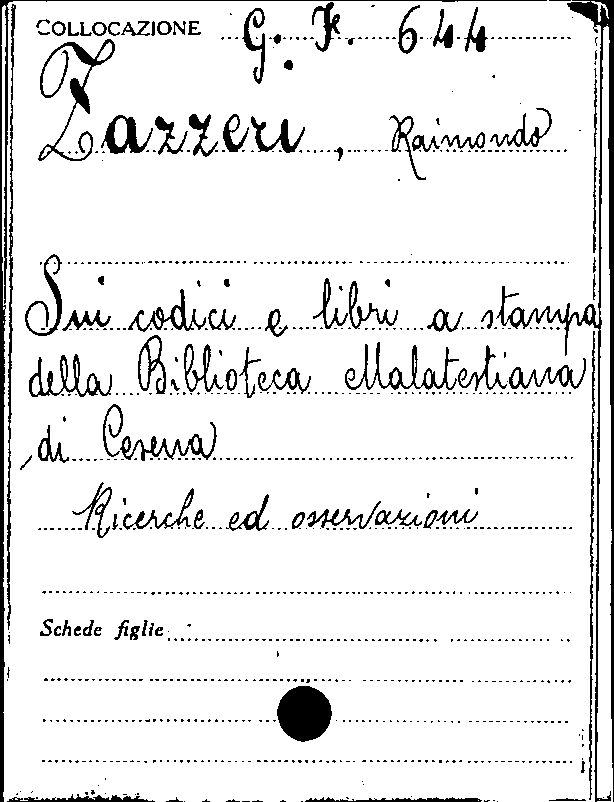 COLLOCAZIONE G. F. 644
Zazzeri, Raimondo
Sui codici e libri a stampa
della Biblioteca Malatestiana
di Cesena
Ricerche ed osservazioni
Schede figlie